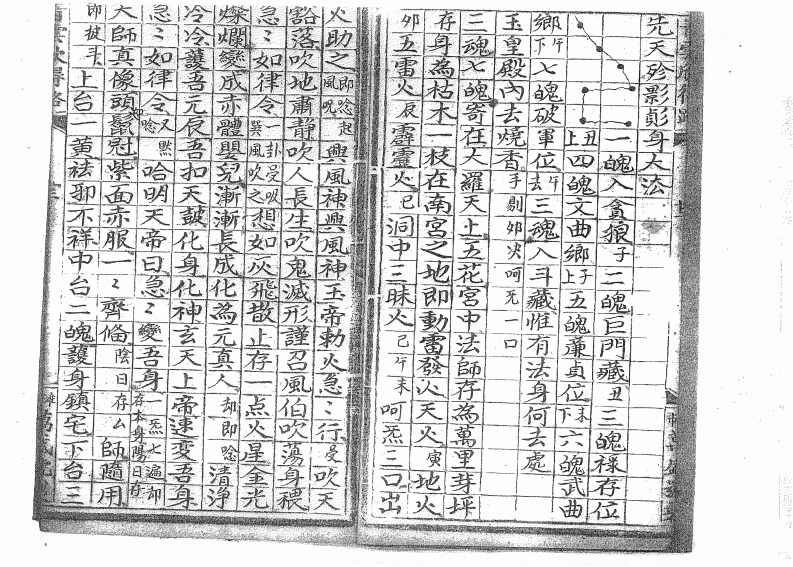 先天殄影貞身大法
一魄入貪狼子二魄巨門藏丑三魄祿存位
丑上四魄文曲鄉子上五魄廉貞位未下六魄武曲
鄉午下七魄破軍位午去三魂入斗藏惟有法身何去處
玉皇殿內去燒香手剔卯決呵先一口
三魂七魄寄在大羅天上五花宮中法師存為萬里荓坪
存身為枯木一枝在南宮之地即動雷發火天火寅地火
卯五雷火辰霹靂火巳洞中三昧火己午未呵炁三口出
火助之即唸起風呪興風神興風神玉帝勅火急〻行吹天
豁落吹地肅靜吹人長生吹鬼滅形謹召風伯吹蕩身穢
急〻如律令一卦受吸巽風吹之想如灰飛散止存一点火星金光
燦爛變成赤體嬰兒漸漸長成化為元真人却即唸清淨
冷冷護吾元辰吾扣天鼓化身化神玄天上帝速变吾身
急〻如律令又黙唸哈明天帝曰急〻變吾身一炁七遍却
大師真像頭鬃冠紫面赤服一〻齊備陰日存厶師隨用
即掞斗上台一黃祛邪不祥中台二魄護身鎮宅下台三